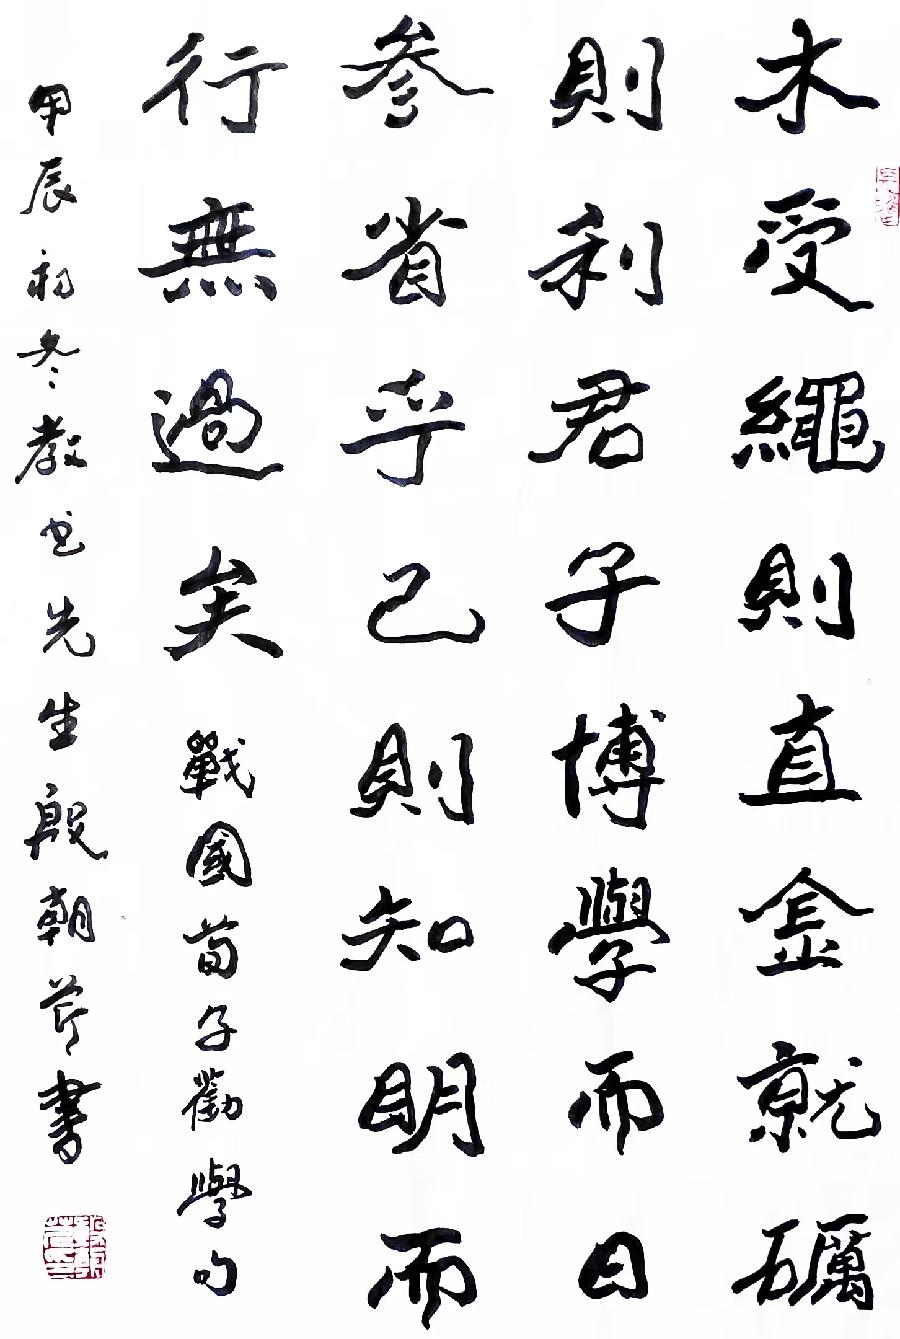 木受繩則直金就礪
則利君子博學而日
參省乎己則知明而
行無過矣戰國荀子勸學句
甲辰初冬教书先生殷朝芹書